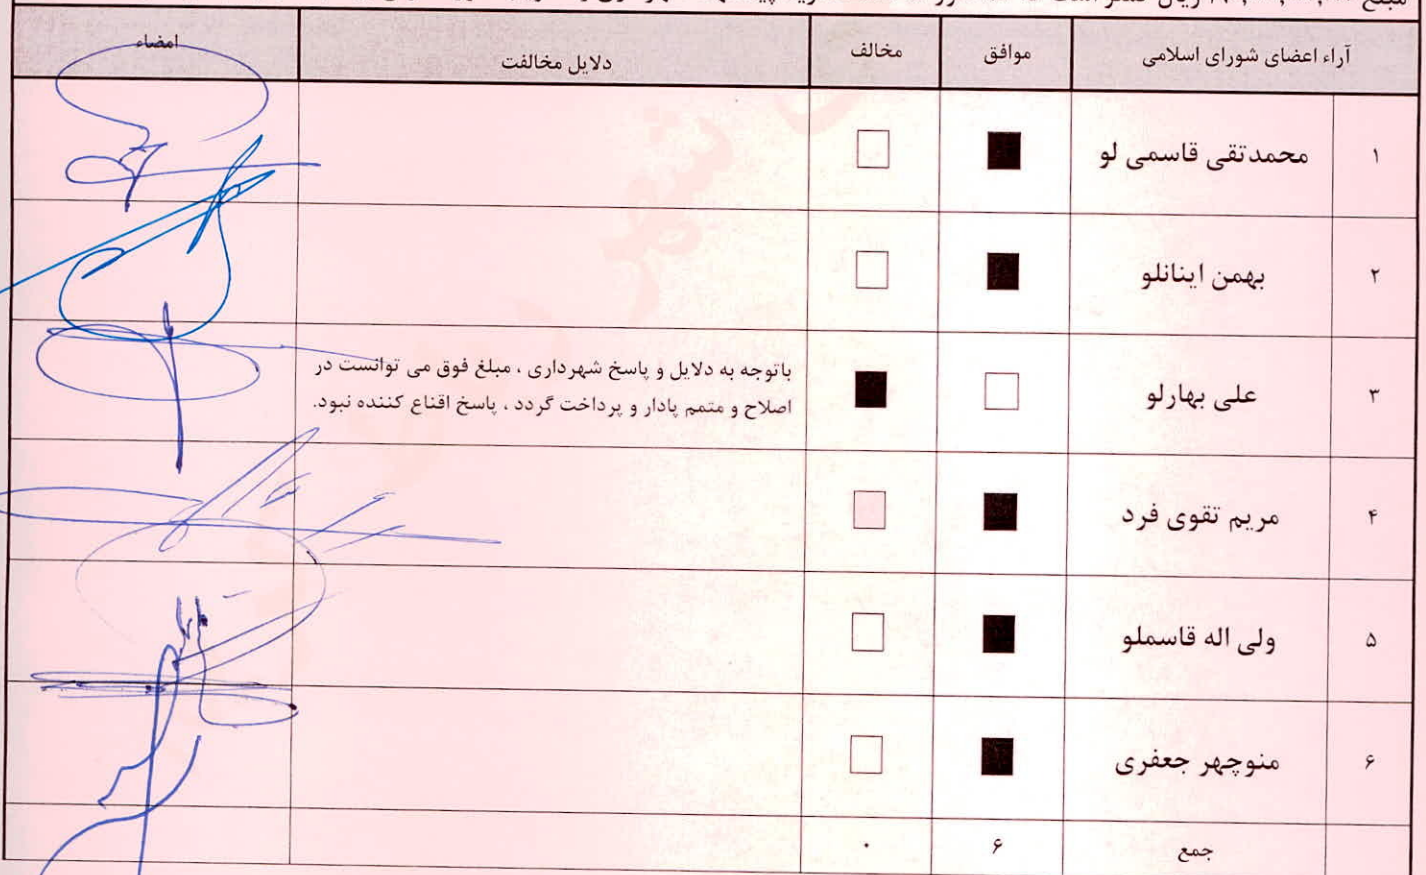 آراء اعضای شورای اسلامی موافق مخالف دلایل مخالفت امضاء
۱ محمدتقی قاسمی لو ■ □
۲ بهمن اینانلو ■ □
۳ علی بهارلو □ ■ باتوجه به دلایل و پاسخ شهرداری ، مبلغ فوق می توانست در
اصلاح و متمم پادار و پرداخت گردد ، پاسخ اقناع کننده نبود.
۴ مریم تقوی فرد ■ □
۵ ولی اله قاسملو ■ □
۶ منوچهر جعفری ■ □
جمع ۶ ۰